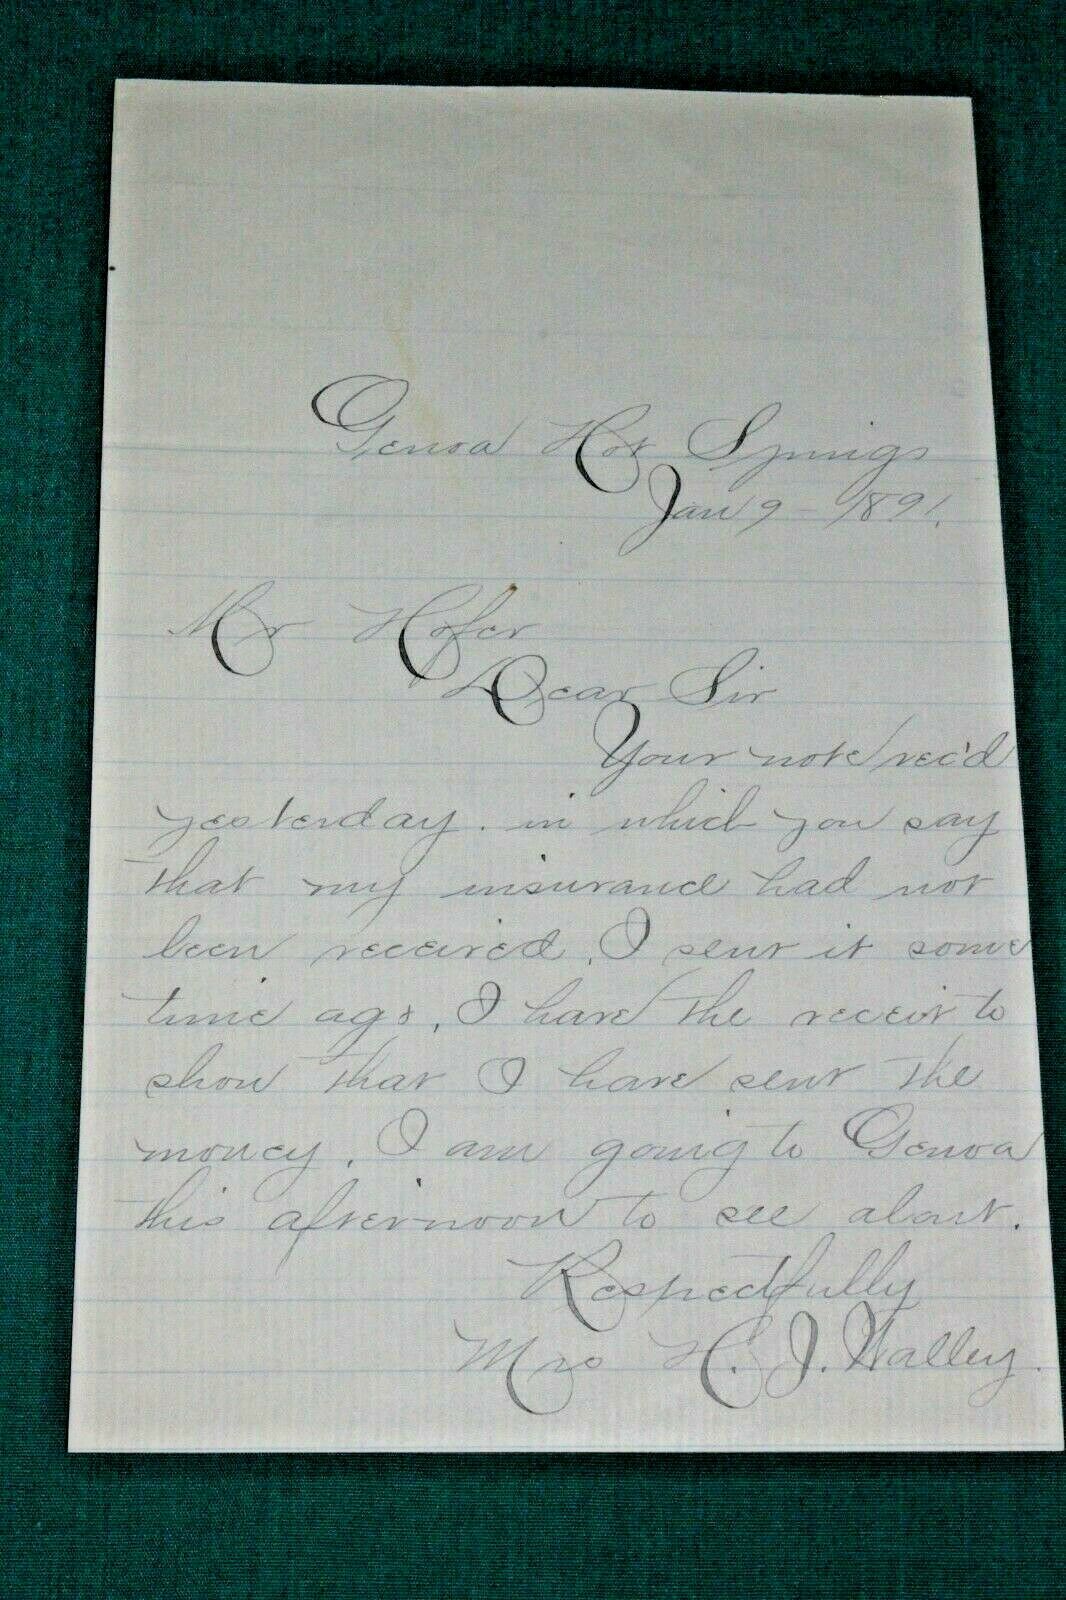 Genoa Hot Springs
Jan 9 - 1891.
Mr Hofer
Dear Sir
Your note rec'd
yesterday. in which you say
that my insurance had not
been received. I sent it some
time ago. I have the receit to
show that I have sent the
money. I am going to Genoa
this afternoon to see about.
Respectfully
Mrs H. J. Walley.